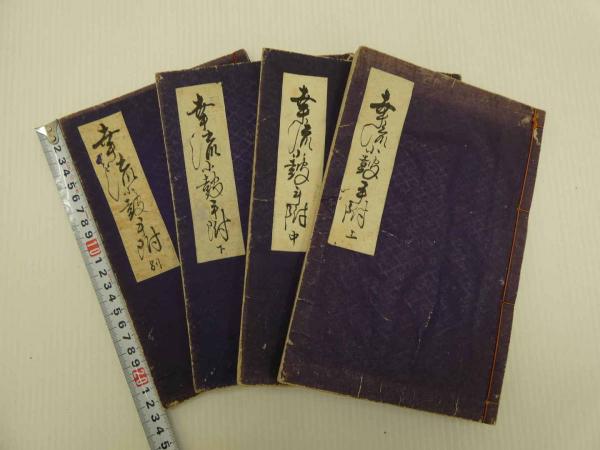 幸流小鼓手附 上
幸流小鼓手附 中
幸流小鼓手附 下
幸流小鼓手附 別
1 2 3 4 5 6 7 8 9 10 1 2 3 4 5 6 7 8 9 20 1 2 3 4 5